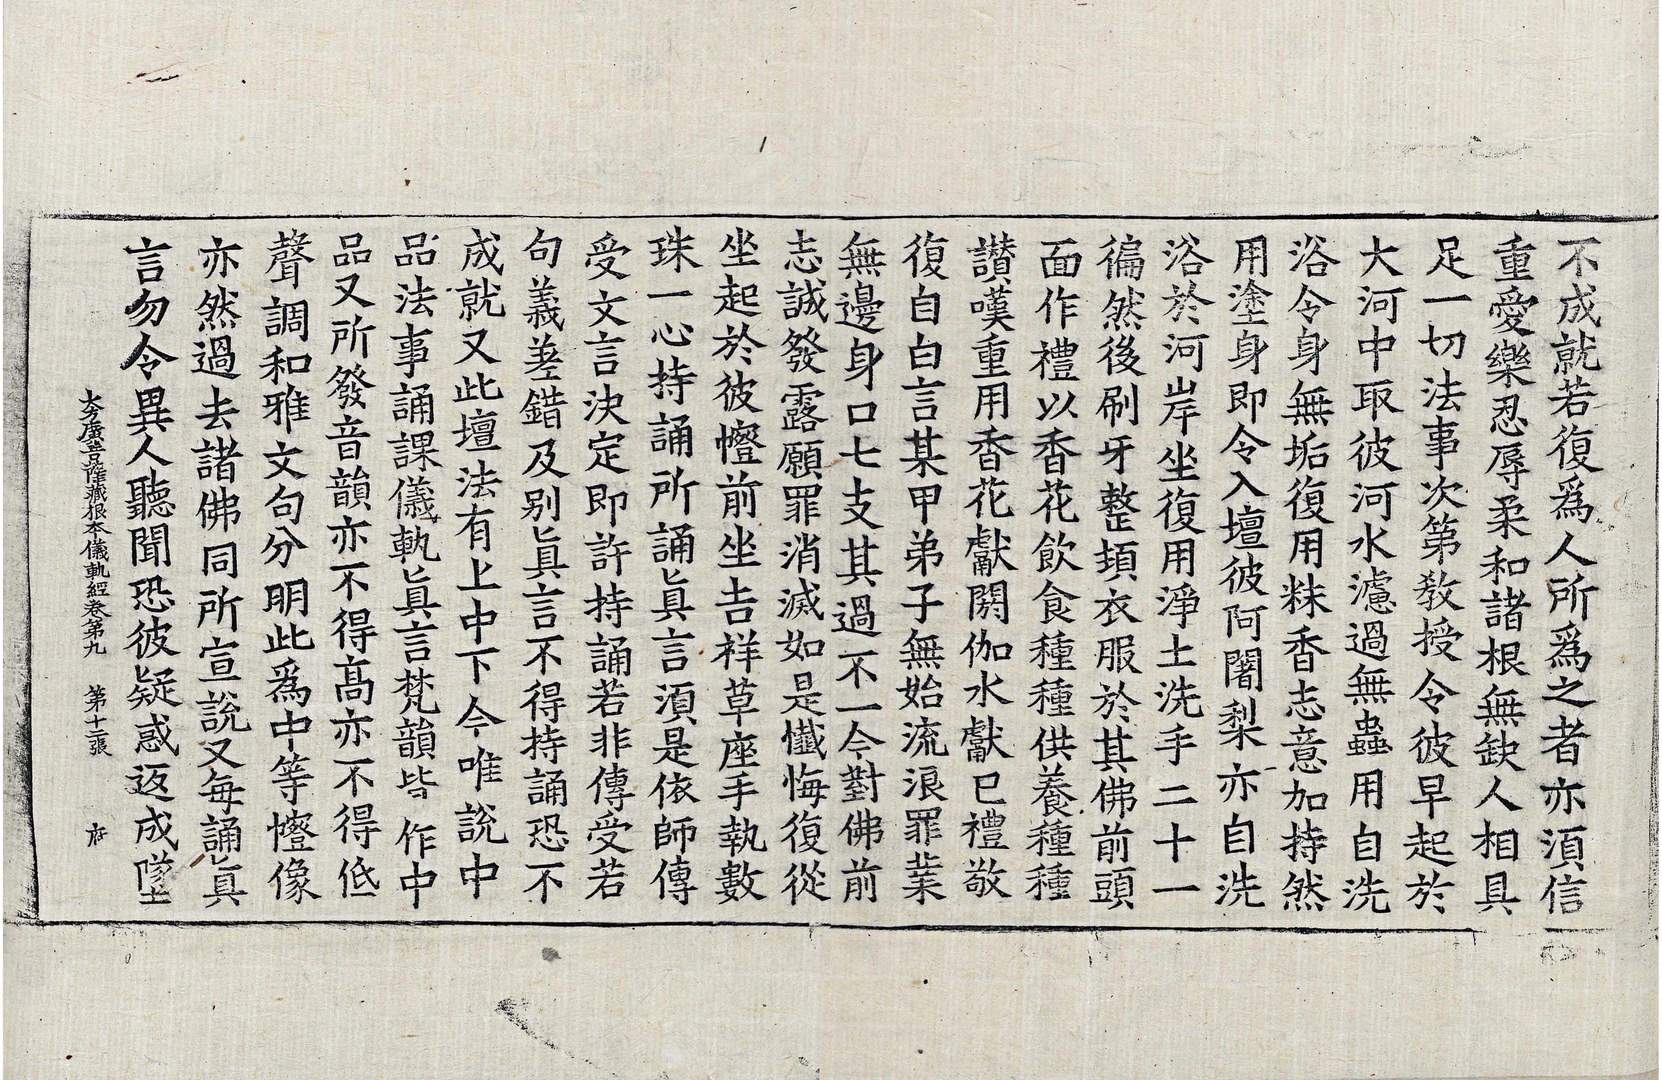 不成就若復爲人所爲之者亦湏信
重愛樂忍辱柔和諸根無缺人相具
足一切法事次第教授令彼早起於
大河中取彼河水濾過無蟲用自洗
浴令身無垢復用粖香志意加持然
用塗身即令入壇彼阿闍梨亦自洗
浴於河岸坐復用淨土洗手二十一
徧然後刷牙整頓衣服於其佛前頭
面作禮以香花飲食種種供養種種
讃嘆重用香花獻閼伽水獻已禮敬
復自白言某甲弟子無始流浪罪業
無邊身口七支其過不一今對佛前
志誠發露願罪消滅如是懺悔復從
坐起於彼㡧前坐吉祥草座手執數
珠一心持誦所誦眞言湏是依師傳
受文言決定即許持誦若非傳受若
句義差錯及别眞言不得持誦恐不
成就又此壇法有上中下今唯說中
品法事誦課儀軌眞言梵韻皆作中
品又所發音韻亦不得高亦不得低
聲調和雅文句分明此爲中等㡧像
亦然過去諸佛同所宣說又每誦眞
言勿令異人聽聞恐彼疑惑返成墜
大方廣菩薩藏根本儀軌經卷第九 第十二張 府